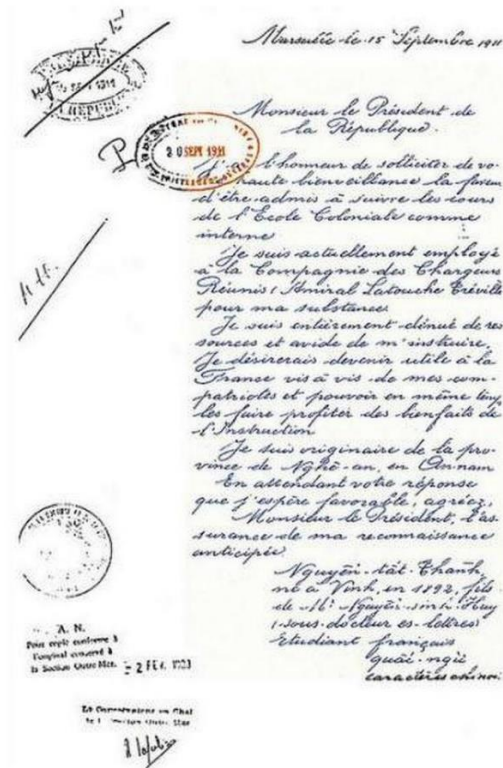 Marseille le 15 Septembre 1911
Monsieur le Président de
la République.
20 SEPT 1911
l'honneur de solliciter de vo-
haute bienveillance la faveur
d'être admis à suivre les cours
de l'Ecole Coloniale comme
interne
Je suis actuellement employé
à la Compagnie des Chargeurs
Réunis (Amiral Latouche Tréville
pour ma substance
Je suis entièrement dénué de res
sources et avide de m'instruire.
Je désirerais devenir utile à la
France vis à vis de mes com-
patriotes et pouvoir en même temps
les faire profiter des bienfaits de
l'Instruction
Je suis originaire de la pro-
vince de Nghê-an, en Annam
En attendant votre réponse
que j'espère favorable, agréez,
Monsieur le Président, l'as
surance de ma reconnaissance
anticipée
Nguyên tât Thanh,
né à Vinh, en 1892, fils
de Mr Nguyên sinh Huy
(sous-docteur ès-lettres
Etudiant français
quôc-ngu
caractères chinois
A. N.
Pour copie conforme à
l'original conservé à
la Section Outre-Mer.